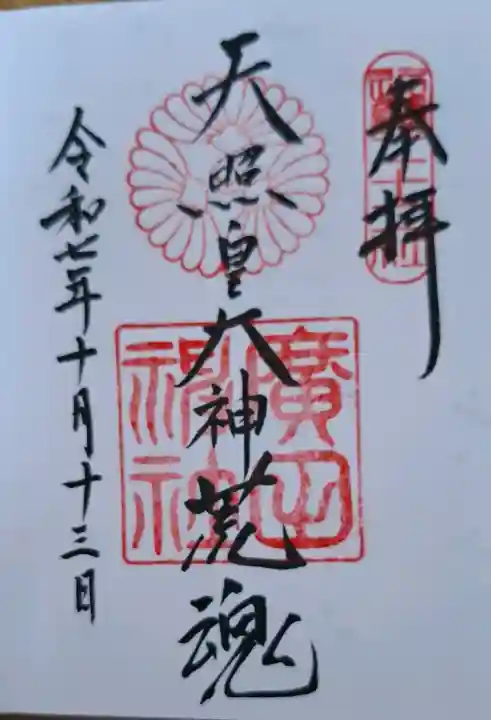 奉拝
天照皇大神荒魂
廣田神社
令和七年十月十三日